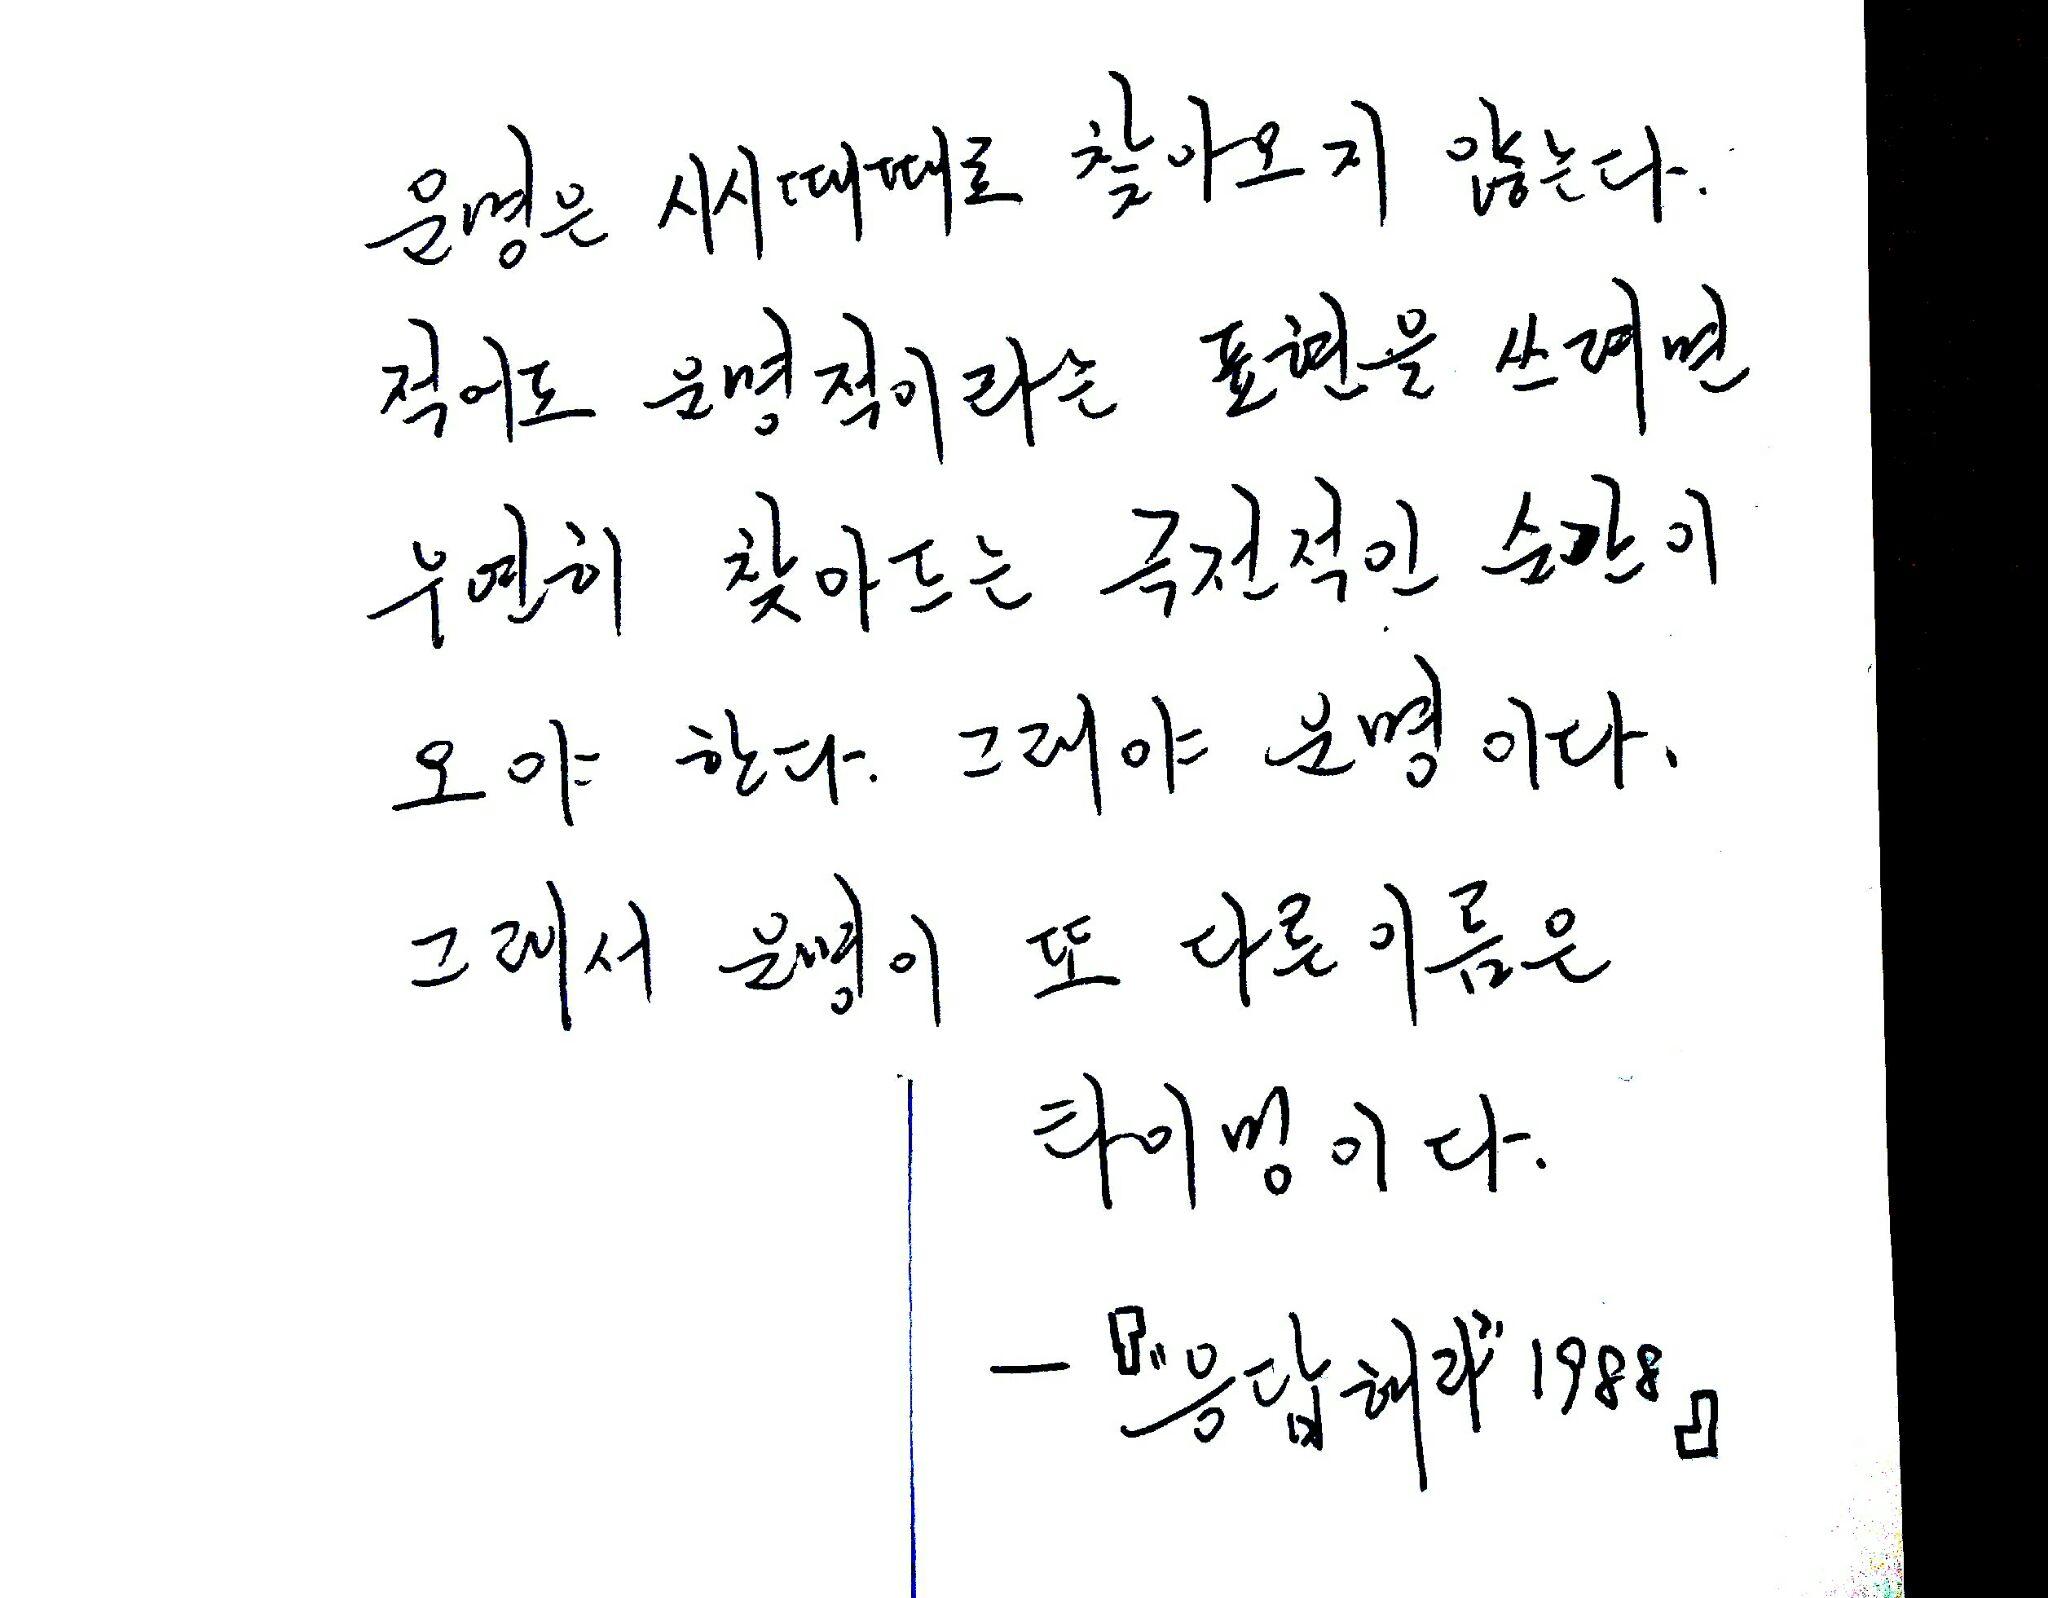 운명은 시시때때로 찾아오지 않는다.
적어도 운명적이라는 표현을 쓰려면
우연히 찾아드는 극전적인 순간이
오야 한다. 그래야 운명이다.
그래서 운명이 또 다른 이름은
타이밍이다.
— 『"응답해라" 1988』